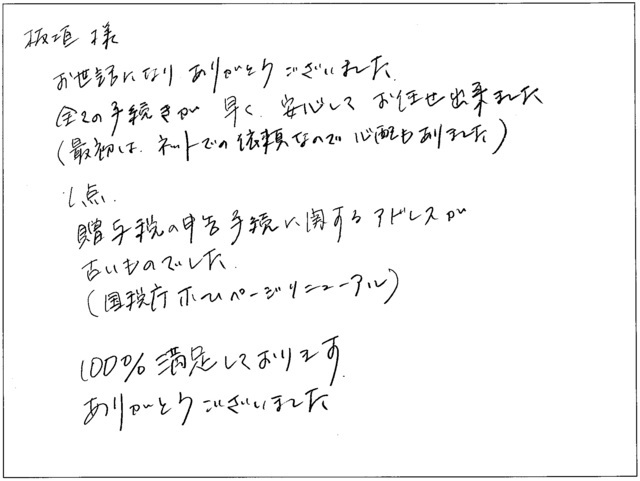 板垣 様
お世話になり ありがとうございました
全ての手続きが 早く、安心して お任せ出来ました
(最初は、ネットでの依頼なので 心配もありました)
1点.
贈与税の申告手続に関するアドレスが
古いものでした.
(国税庁ホームページリニューアル)
100% 満足しております.
ありがとうございました